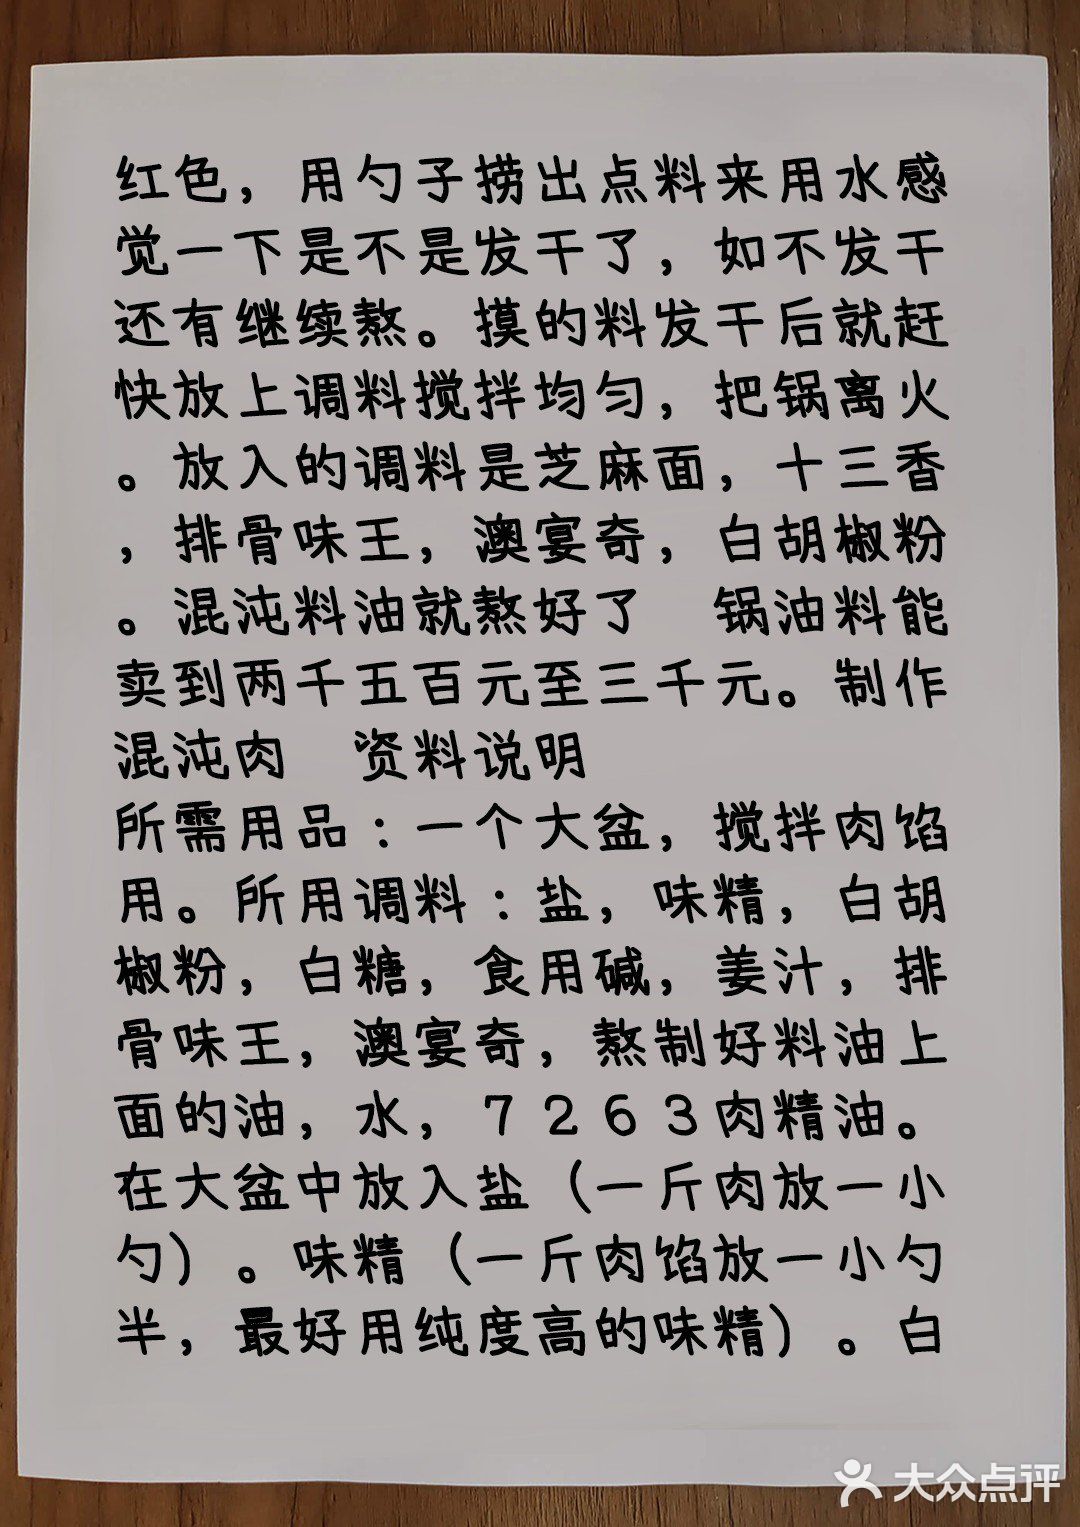 红色，用勺子捞出点料来用水感
觉一下是不是发干了，如不发干
还有继续熬。摸的料发干后就赶
快放上调料搅拌均匀，把锅离火
。放入的调料是芝麻面，十三香
，排骨味王，澳宴奇，白胡椒粉
。混沌料油就熬好了　锅油料能
卖到两千五百元至三千元。制作
混沌肉　资料说明
所需用品：一个大盆，搅拌肉馅
用。所用调料：盐，味精，白胡
椒粉，白糖，食用碱，姜汁，排
骨味王，澳宴奇，熬制好料油上
面的油，水，７２６３肉精油。
在大盆中放入盐（一斤肉放一小
勺）。味精（一斤肉馅放一小勺
半，最好用纯度高的味精）。白
大众点评